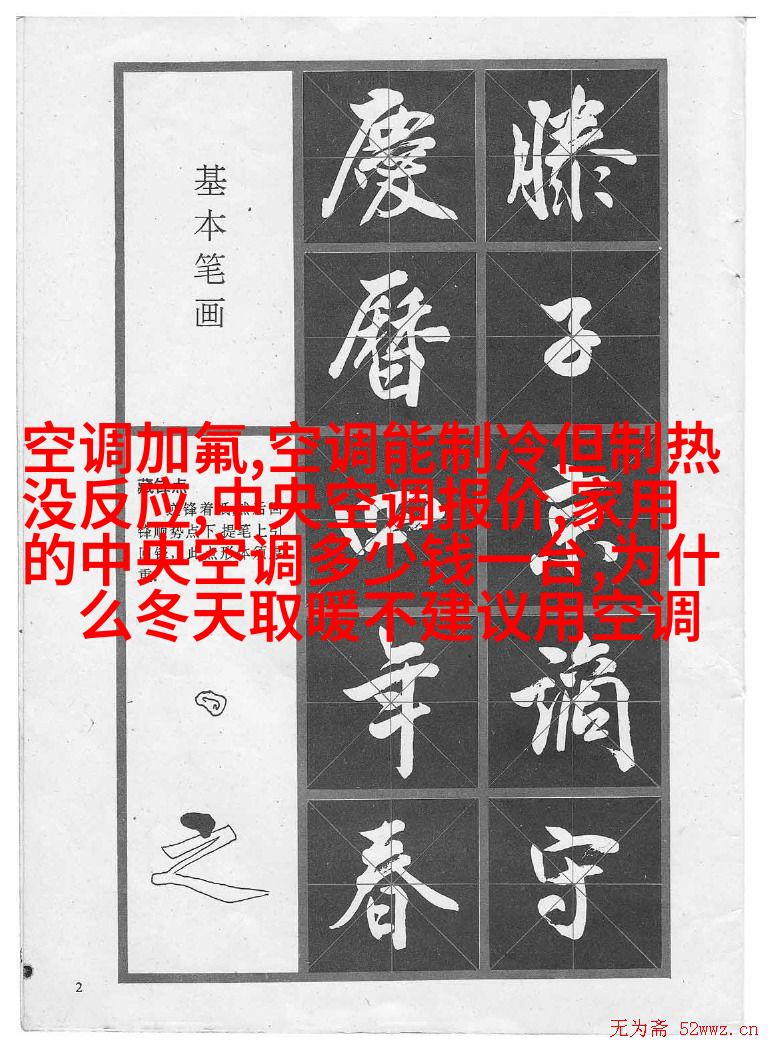 基本笔画
慶
滕
曆
子
京
年
謫
春
守
空调加氟,空调能制冷但制热
没反应,中央空调报价,家用
的中央空调多少钱一台,为什
么冬天取暖不建议用空调
之
2
无为斋 52wwz.cn